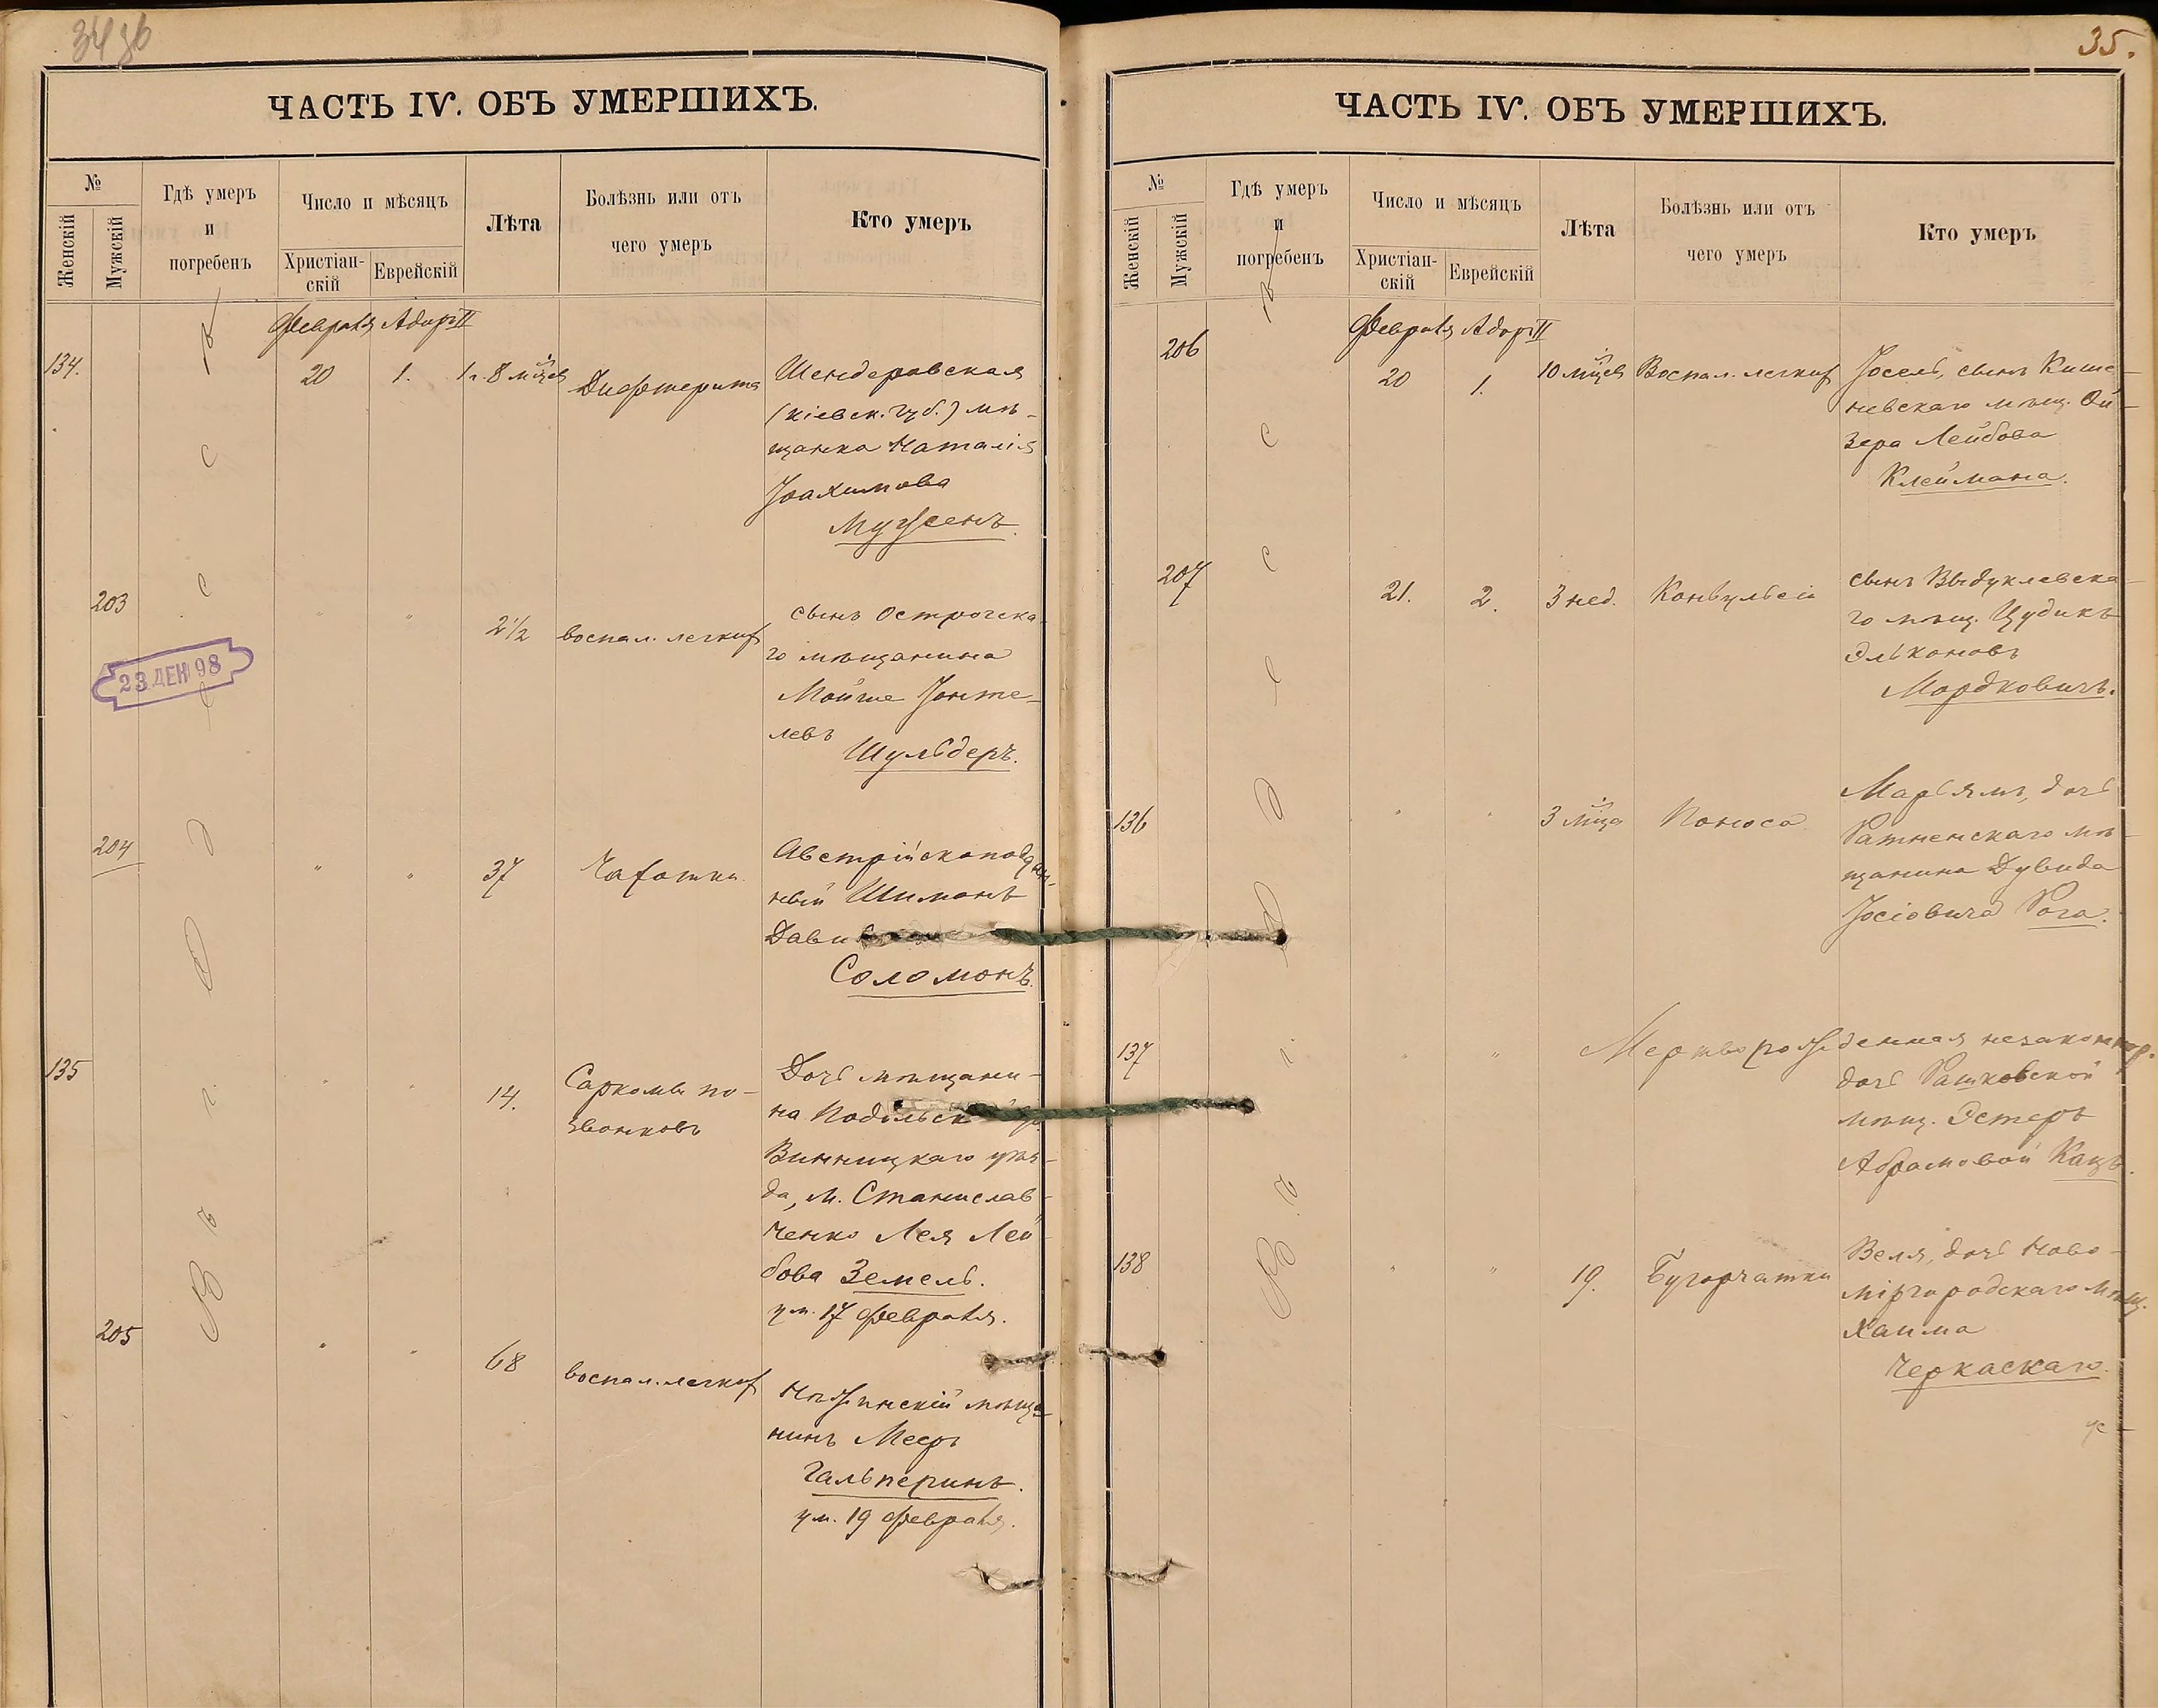 34 об
ЧАСТЬ IV. ОБЪ УМЕРШИХЪ.
№
Женскій
Мужскій
Гдѣ умеръ
и
погребенъ
Число и мѣсяцъ
Христіан-
скій
Еврейскій
Лѣта
Болѣзнь или отъ
чего умеръ
Кто умеръ
въ
Февраля Адоръ II
134. 20 1. 1 г. 8 мѣсцевъ Дифтерита
Шендеровская
(кіевск. губ.) мѣ-
щанка Наталія
Іоахимова
203 " " 2½ воспал. легкихъ
сынъ Острогска-
го мѣщанина
Мойше Іонте-
левъ
Шульдеръ.
23 ДЕН 98
204 " " 37 Чахотки
Австрійскоподдан-
ный Шимонъ
Дави
Соломонъ.
135 " " 14. Саркомы по-
звонковъ
Дочь мѣщани-
на Подольск
Винницкаго уѣз-
да, м. Станислав-
ченко Лея Лей-
бова Земель.
ум. 17 Февраля.
205 " " 68 воспал. легкихъ
Нѣжинскій мѣща-
нинъ Мееръ
Гальперинъ.
ум. 19 Февраля.
О д е с с ѣ
35.
ЧАСТЬ IV. ОБЪ УМЕРШИХЪ.
№
Женскій
Мужскій
Гдѣ умеръ
и
погребенъ
Число и мѣсяцъ
Христіан-
скій
Еврейскій
Лѣта
Болѣзнь или отъ
чего умеръ
Кто умеръ
Февраля Адоръ II
206 20 1. 10 мѣсцевъ Воспал. легкихъ
Іосель, сынъ Кише-
невскаго мѣщ. Ой-
зера Лейбова
Клеймана.
207 21. 2. 3 нед. Конвульсіи
сынъ Выдуклевска-
го мѣщ. Цудикъ
Эльконовъ
Мордковичъ.
136 " " 3 мѣсца Поноса
Марьямъ, дочь
Ратненскаго мѣ-
щанина Дувида
Іосіовича Рога.
137 " " Мертворожденная незаконнор.
дочь Рашковской
мѣщ. Эстеръ
Абрамовой Кацъ.
138 " " 19. Бугорчатки
Веля, дочь Ново-
міргородскаго мѣщ.
Хаима
Черкаскаго.